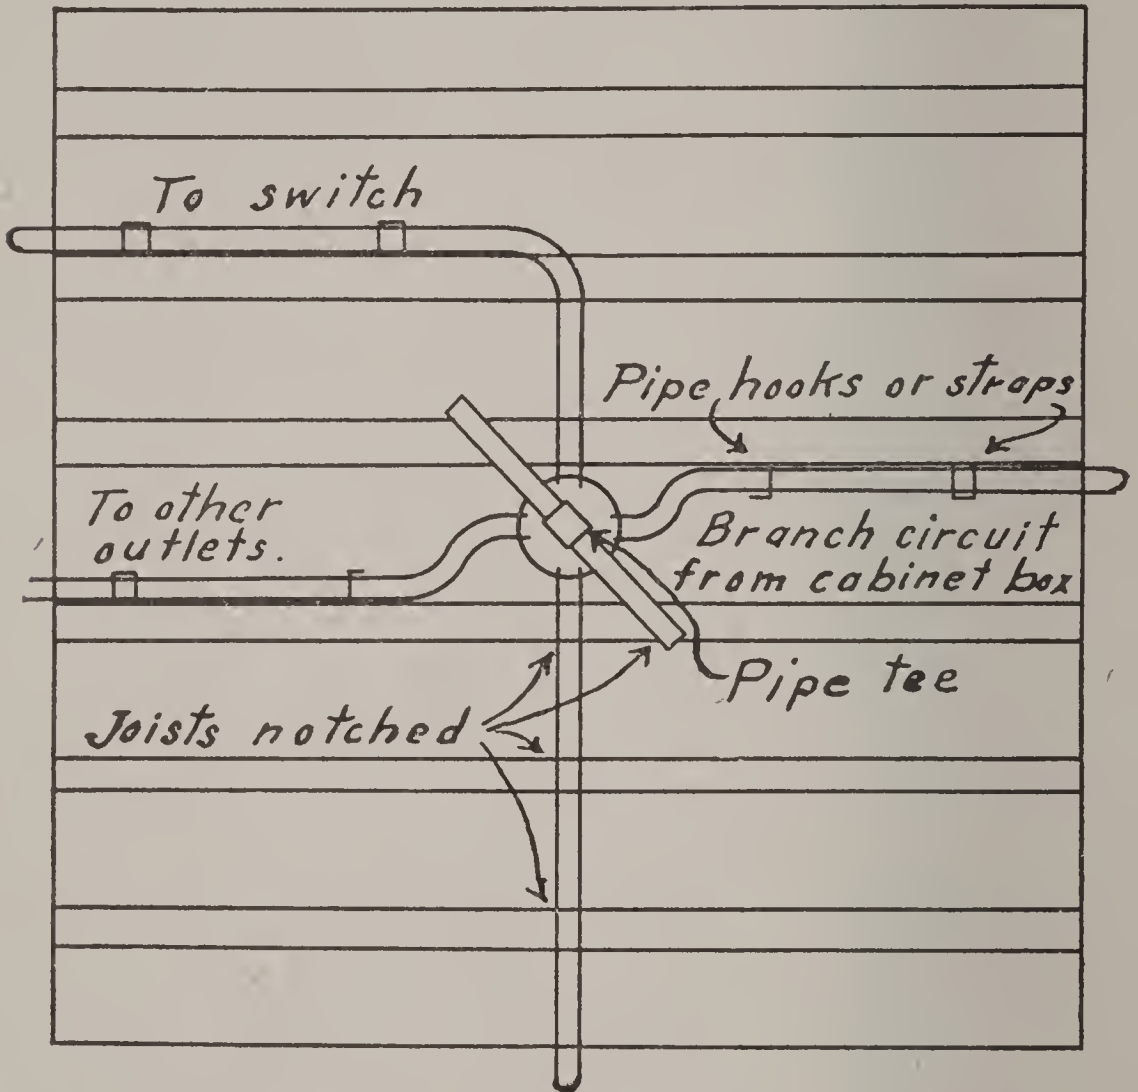 To switch
Pipe hooks or straps
To other
outlets.
Branch circuit
from cabinet box
Pipe tee
Joists notched